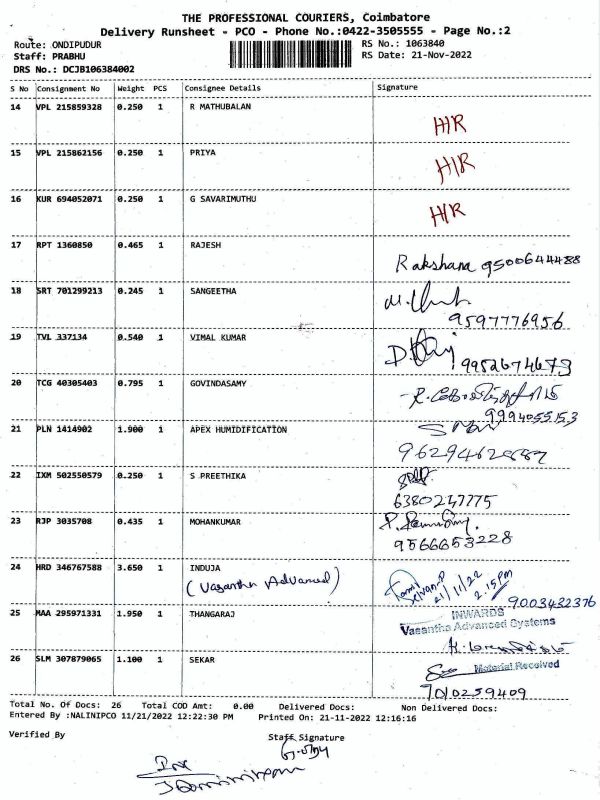 THE PROFESSIONAL COURIERS, Coimbatore
Delivery Runsheet - PCO - Phone No.:0422-3505555 - Page No.:2
Route: ONDIPUDUR RS No.: 1063840
Staff: PRABHU RS Date: 21-Nov-2022
DRS No.: DCJB106384002
S No Consignment No Weight PCS Consignee Details Signature
14 VPL 215859328 0.250 1 R MATHUBALAN H/R
15 VPL 215862156 0.250 1 PRIYA H/R
16 KUR 694052071 0.250 1 G SAVARIMUTHU H/R
17 RPT 1360850 0.465 1 RAJESH Rakshana 9500644488
18 SRT 701299213 0.245 1 SANGEETHA
9597776956
19 TVL 337134 0.540 1 VIMAL KUMAR
9952674673
20 TCG 40305403 0.795 1 GOVINDASAMY
9994055153
21 PLN 1414902 1.900 1 APEX HUMIDIFICATION
22 IXM 502550579 0.250 1 S PREETHIKA
6380247775
23 RJP 3035708 0.435 1 MOHANKUMAR
9566653228
24 HRD 346767588 3.650 1 INDUJA
(Vasantha Advanced) 21/11/22 2.15PM
9003432376
25 MAA 295971331 1.950 1 THANGARAJ INWARDS
Vasantha Advanced Systems
26 SLM 307879065 1.100 1 SEKAR Material Received
7010259409
Total No. Of Docs: 26 Total COD Amt: 0.00 Delivered Docs: Non Delivered Docs:
Entered By :NALINIPCO 11/21/2022 12:22:30 PM Printed On: 21-11-2022 12:16:16
Verified By Staff Signature